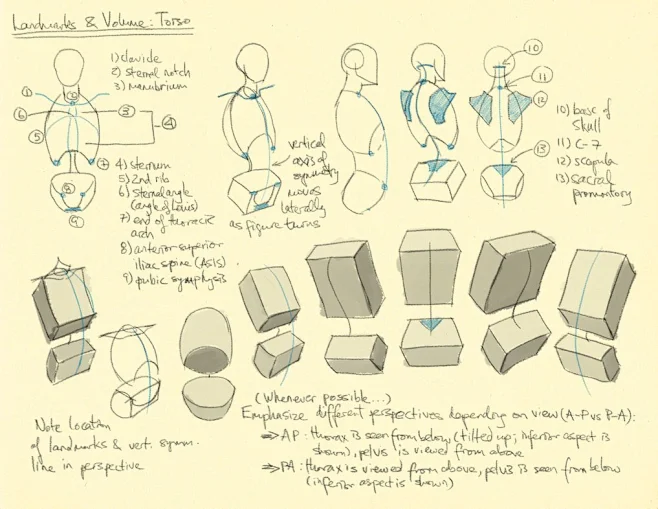 Landmarks & Volume: Torso
1) clavicle
2) sternal notch
3) manubrium
1
2
3
6
4
5
7
8
9
4) sternum
5) 2nd rib
6) sternal angle
(angle of Louis)
7) end of thoracic
arch
8) anterior superior
iliac spine (ASIS)
9) pubic symphysis
vertical
axis of
symmetry
moves
laterally
as figure turns
10
11
12
13
10) base of
skull
11) C-7
12) scapula
13) sacral
promontory
Note location
of landmarks & vert. symm.
line in perspective
(Whenever possible...)
Emphasize different perspectives depending on view (A-P vs P-A):
⇒ AP: thorax is seen from below, (tilted up; inferior aspect is
shown), pelvis is viewed from above
⇒ PA: thorax is viewed from above, pelvis is seen from below
(inferior aspect is shown)